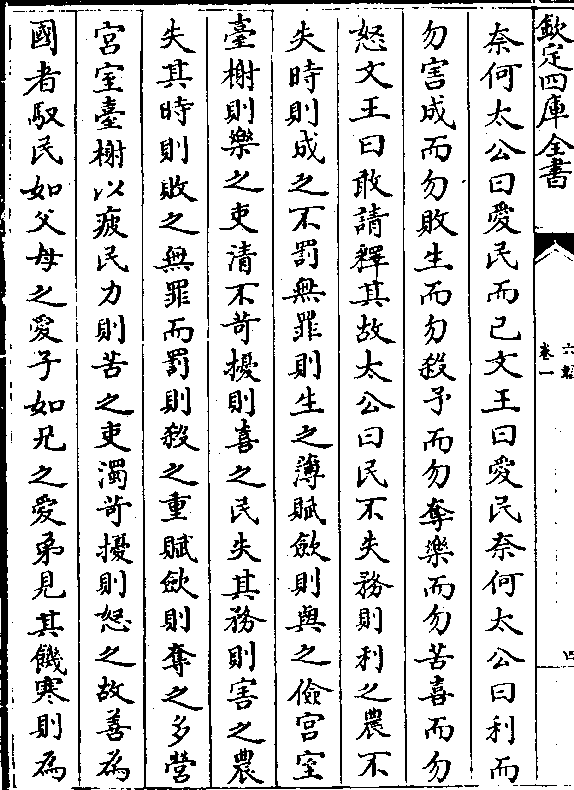 欽定四庫全書
六韜
卷一
四
奈何太公曰愛民而已文王曰愛民奈何太公曰利而
勿害成而勿敗生而勿殺予而勿奪樂而勿苦喜而勿
怒文王曰敢請釋其故太公曰民不失務則利之農不
失時則成之不罰無罪則生之薄賦斂則與之儉宮室
臺榭則樂之吏清不苛擾則喜之民失其務則害之農
失其時則敗之無罪而罰則殺之重賦斂則奪之多營
宮室臺榭以疲民力則苦之吏濁苛擾則怒之故善為
國者馭民如父母之愛子如兄之愛弟見其饑寒則為